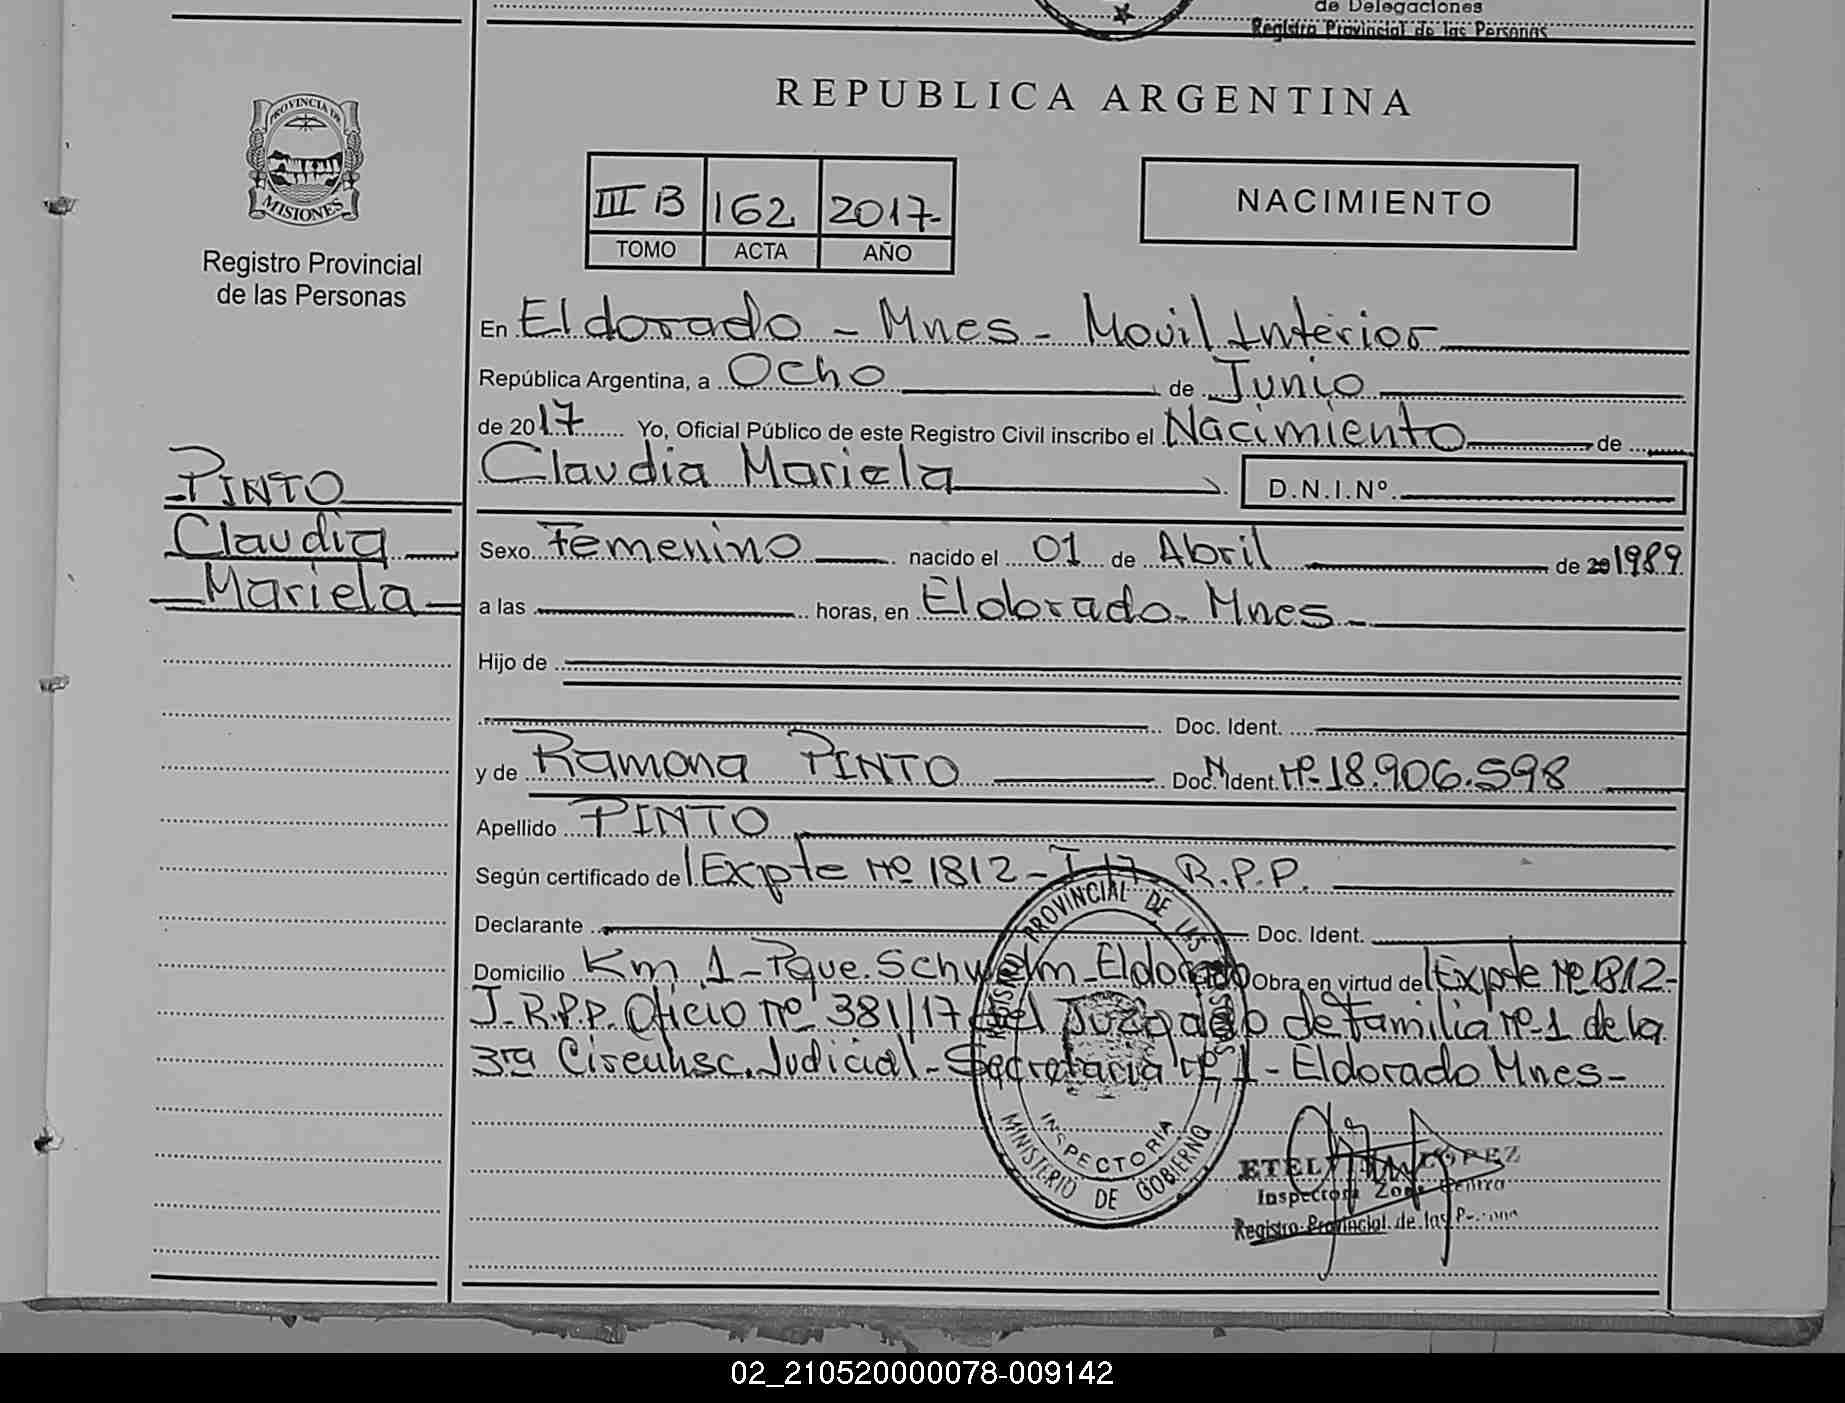 de Delegaciones
Registro Provincial de las Personas
PROVINCIA DE
MISIONES
Registro Provincial
de las Personas
REPUBLICA ARGENTINA
III B 162 2017-
TOMO ACTA AÑO
NACIMIENTO
En Eldorado - Mnes - Movil Interior
República Argentina, a Ocho de Junio
de 2017 Yo, Oficial Público de este Registro Civil inscribo el Nacimiento de
Claudia Mariela D.N.I.Nº.
PINTO
Claudia
Mariela
Sexo Femenino nacido el 01 de Abril de 20 1989
a las horas, en Eldorado - Mnes -
Hijo de
Doc. Ident.
y de Ramona PINTO Doc. Ident. Nº 18.906.598
Apellido PINTO
Según certificado de Expte Nº 1812 - J 17 R.P.P.
Declarante Doc. Ident.
Domicilio Km 1 - Pque. Schwelm - Eldorado Obra en virtud de Expte Nº 1812 -
J - R.P.P. Oficio Nº 381/17 del Juzgado de Familia Nº 1 de la
3ra Circunsc. Judicial - Secretaria Nº 1 - Eldorado Mnes -
REGISTRO PROVINCIAL DE LAS PERSONAS
INSPECTORIA
MINISTERIO DE GOBIERNO
LOPEZ
Inspectora Zona Centro
Registro Provincial de las
02_210520000078-009142